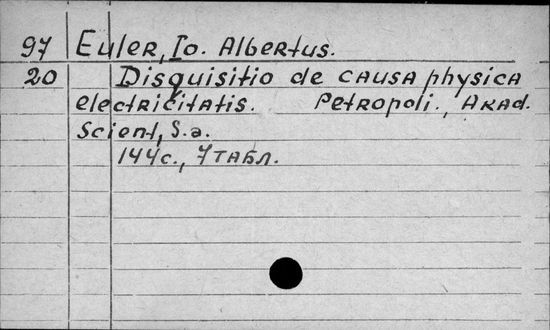 97 Euler, Io. Albertus.
20 Disquisitio de causa physica
electricitatis. Petropoli., Akad.
Scient, S.a.
144с., 7 табл.